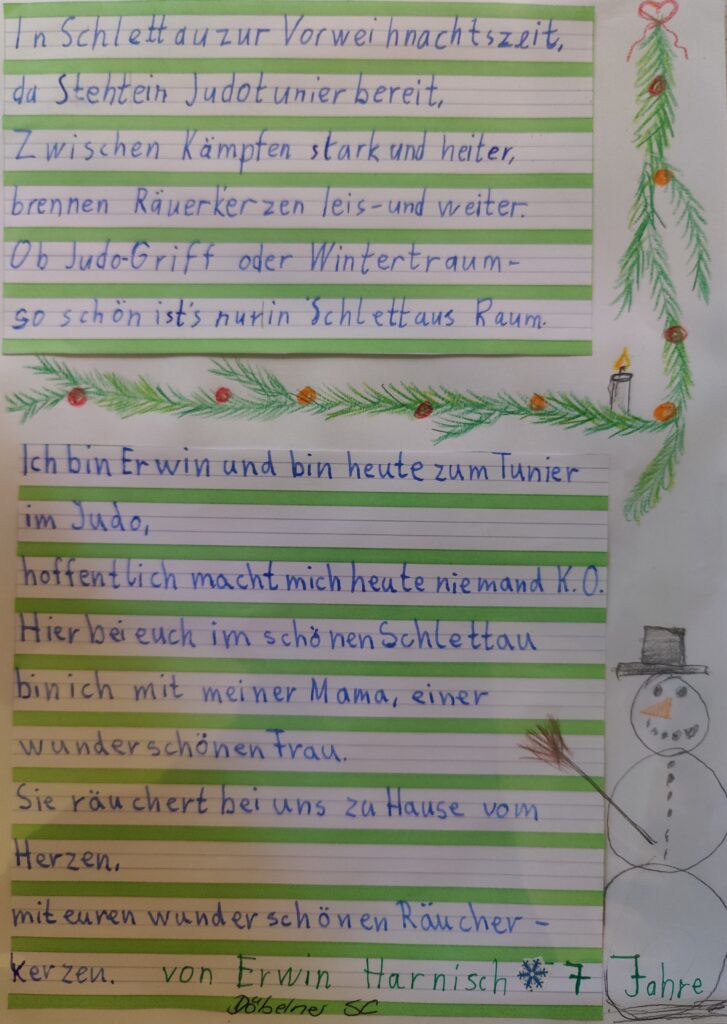 In Schlettau zur Vorweihnachtszeit,
da Steht ein Judotunier bereit,
Zwischen Kämpfen stark und heiter,
brennen Räuerkerzen leis- und weiter.
Ob Judo-Griff oder Wintertraum-
so schön ist's nur in Schlettaus Raum.
Ich bin Erwin und bin heute zum Tunier
im Judo,
hoffentlich macht mich heute niemand K.O.
Hier bei euch im schönen Schlettau
bin ich mit meiner Mama, einer
wunderschönen Frau.
Sie räuchert bei uns zu Hause vom
Herzen,
mit euren wunderschönen Räucher-
kerzen. von Erwin Harnisch 7 Jahre
Döbelner SC